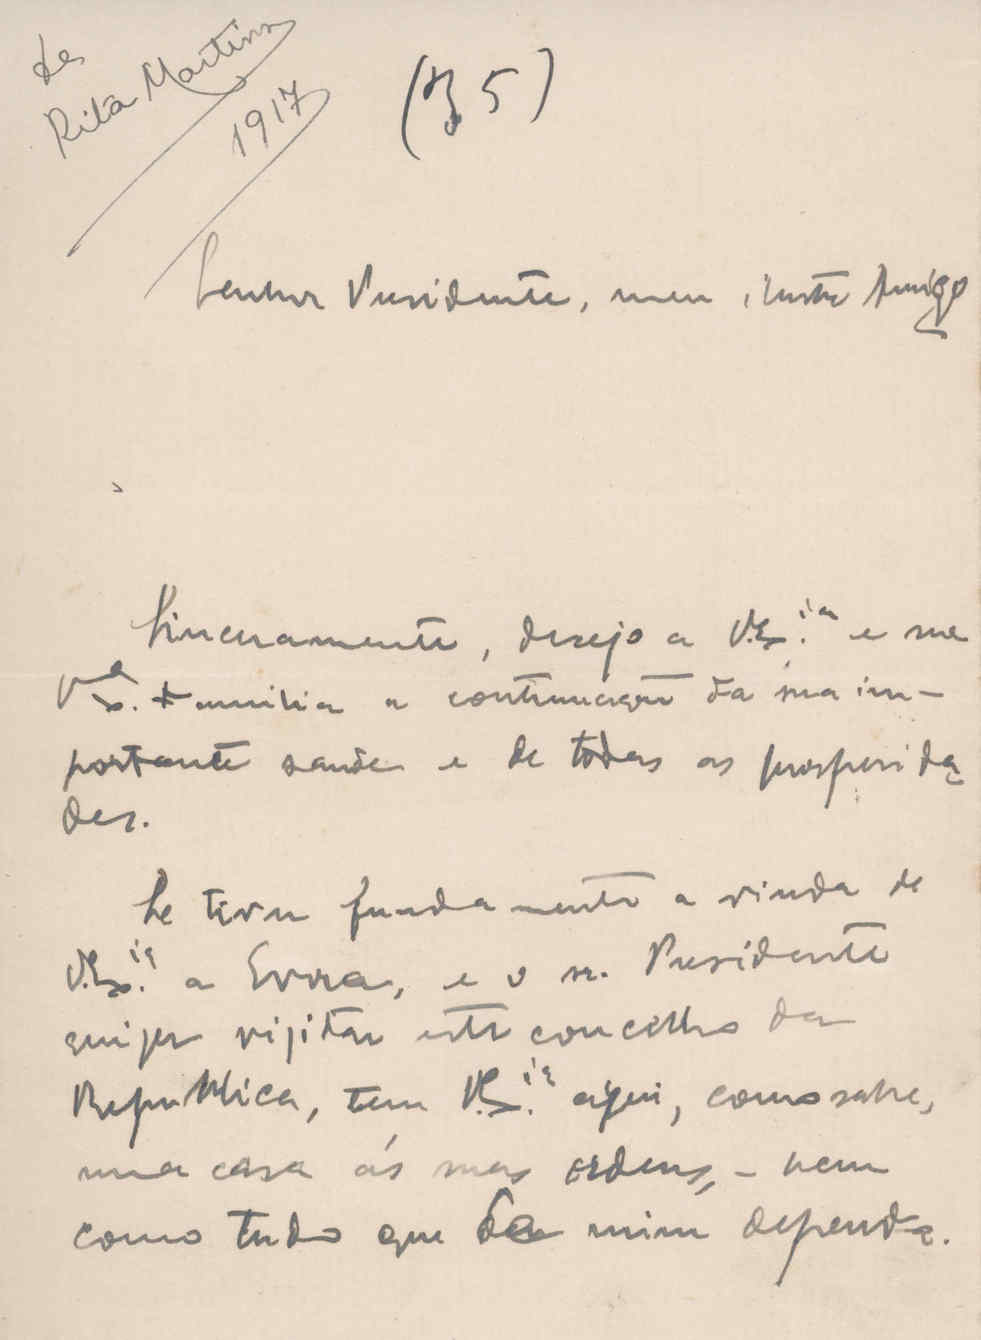 de
Rita Martins
1917
5)
Senhor Presidente, meu ilustre Amigo
Sinceramente, desejo a V. Ex.ia e sua
V Ex.a Familia a continuação da sua im-
portante saude e de todas as prosperida
des.
Se tiver fundamento a vinda de
V. Ex.ia a Evora, e o sr. Presidente
quizer vizitar este concelho da
Republica, tem V. Ex.ia aqui, como sabe,
uma casa ás suas ordens, - bem
como tudo que de mim dependa.